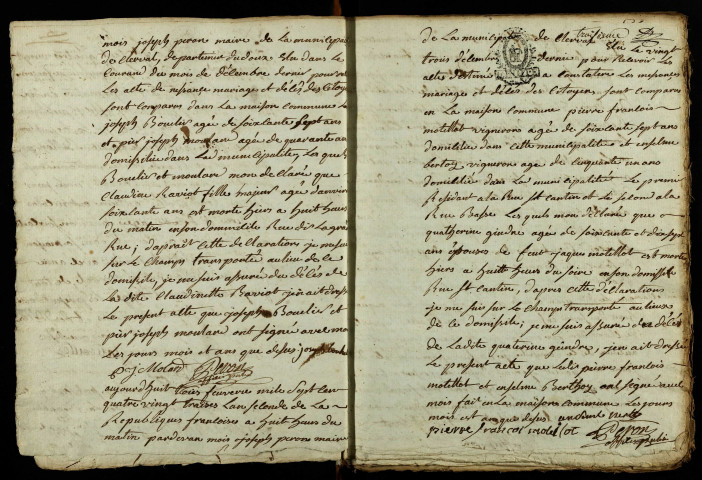 mois joseph peron maire de la municipal
de Clerval, departemen du doux Elu dans le
Courand du mois de délembre dernie pour re
Les alte de nessanse mariage et délés des Citoye
sont comparus dans la maison Commune
joseph Bouclie agée de soixlante sept ans
et pier joseph moulare agée de quarante an
domissilié dans la ditte municipalitéz, Les quel
Bouclie et moulare mon declaré que
Claudine Raviot fille majeur agé d'anviro
soixlante ans est morte hiers a huit heure
du matin enson dommisile Rue de la gra
Rue; d'apraît cette declarations je me suis
sur le Champs transportée au lieux de le
domissile, je me suis assurée du délés de
La dite Claudinette Raviot jen ai dress
Le present alte que joseph Bouclie et
pier joseph moulare ont signé avel mo
Les jours mois et ans que desus
P J Molard Peron
aujourdhuit trois feuverie mile sept cen
quatre vingt traizes Lan selonde de La
Republiques franloises a huit heure du
matin pardevan mois joseph peron maire
de La municipalité de Clerval troisieme
Elu Le vingt
trois délembre dernie pour Relevoir Les
altes destinés a Constatere Les nessanses
mariage et délés des Citoyens sont comparus
en La maison commune pierre franlois
motillot vignerons agée de soixlante sept ans
domilié dans cette municipalité et enselme
bertoz vignerons age de Cinquante un ans
domilié dans La municipalité Le premié
Residant a la Rue st Cantin et le selond a la
Rue Basse Les quels mon declaré que
quathorine gindre agée de soixlante et dixsept
ans épouses de feut jaques motillot est morte
hiers a huitt heure du soire en son domissile
Rue st Cantin, d'apres cette déclarations
je me suis sur le Champs transporté au lieux
de le domissile, je me suis assurée du délés
de Ladite quaterine gindre, jen ai dressé
Le present acte que Ledit pierre franlois
motillot et enselme Berthoz ont segné avel
mois fait en La maison commune Les jours
mois et ans que desus
pierre francoi motillot Peron